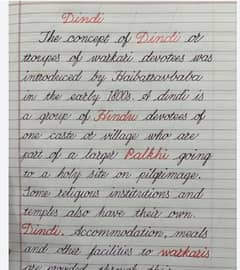 Dindi
The concept of Dindi or
troupes of warkari devotees was
introduced by Haibatravbaba
in the early 1800s. A dindi is
a group of Hindu devotees of
one caste or village who are
part of a larger Palkhi going
to a holy site on pilgrimage.
Some religious institutions and
temples also have their own
Dindi. Accommodation, meals
and other facilities to warkaris
are provided through this